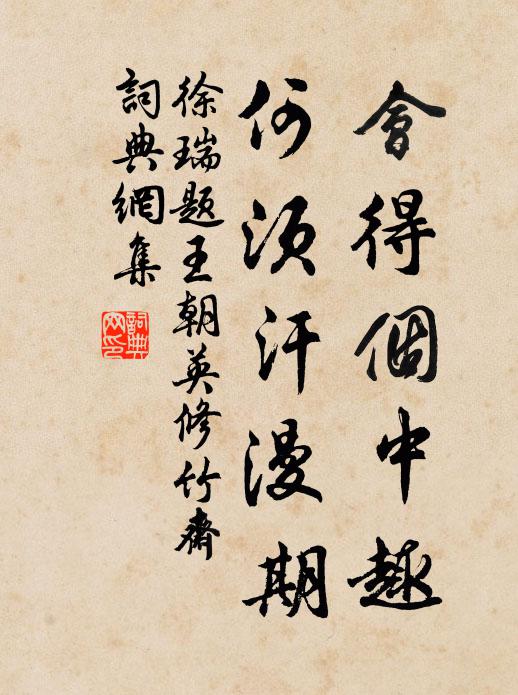 會得個中趣
何須汗漫期
徐瑞題王朝英修竹齋
詞典網集
詞典網印